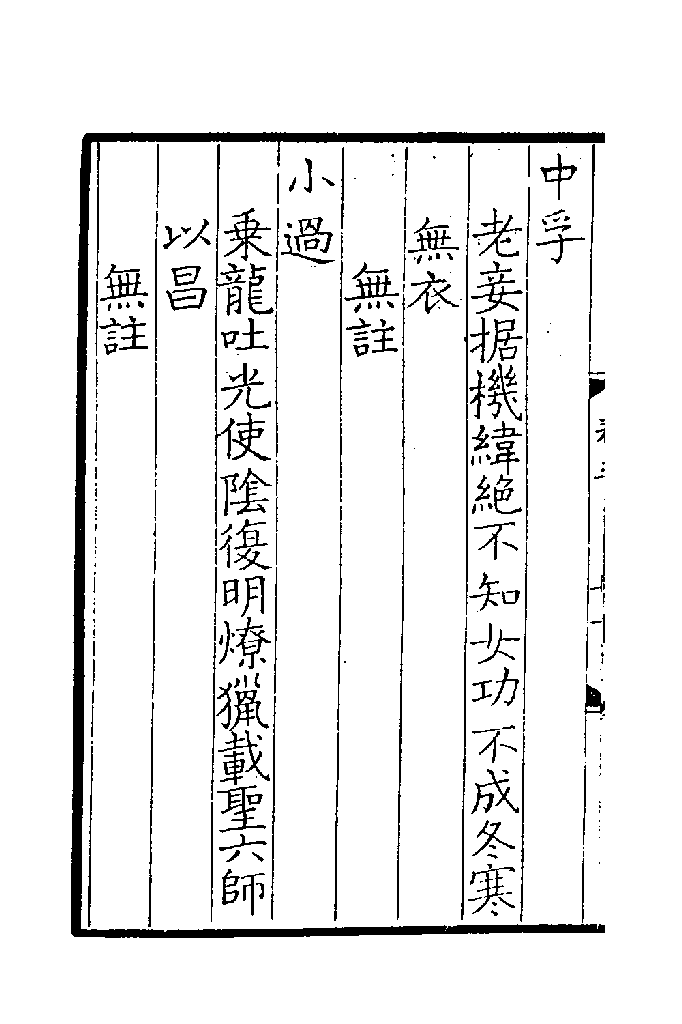 中孚
老妾据機緯絶不知女功不成冬寒
無衣
無註
小過
乗龍吐光使隂復明燎獵載聖六師
以昌
無註